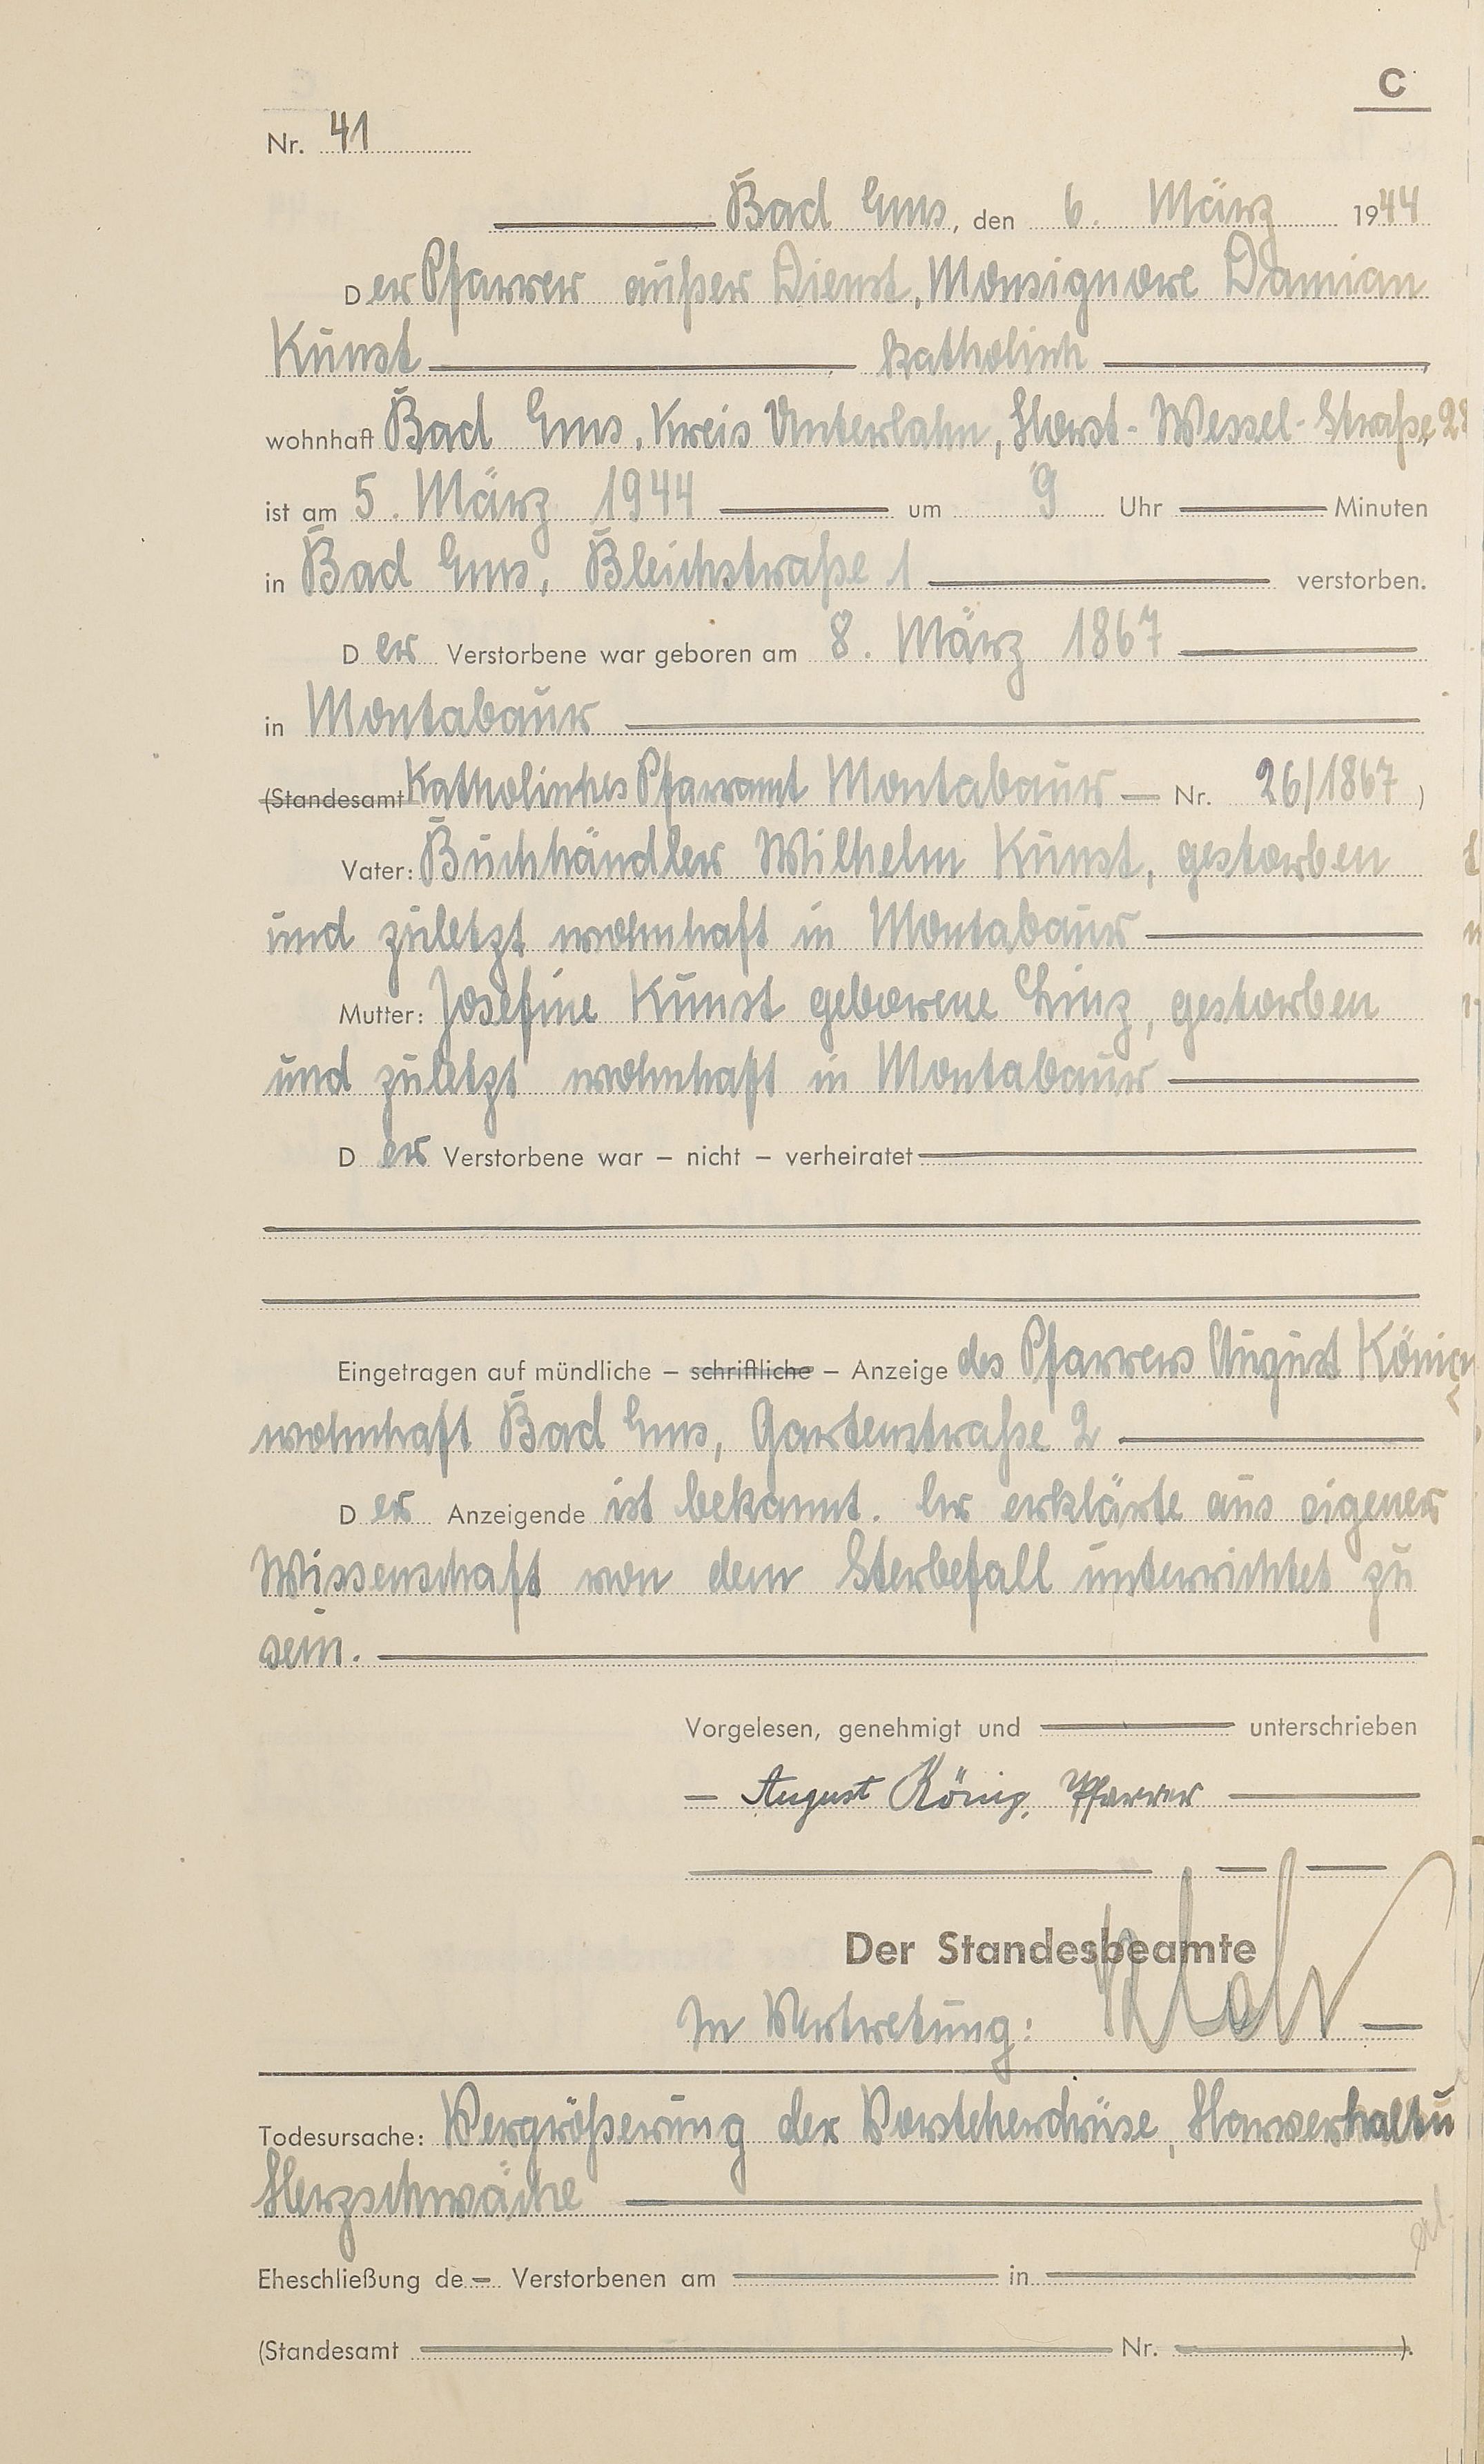 C
Nr. 41
Bad Ems, den 6. März 1944
Der Pfarrer außer Dienst, Monsignore Damian
Kunst katholisch
wohnhaft Bad Ems, Kreis Unterlahn, Horst-Wessel-Straße 28
ist am 5. März 1944 um 9 Uhr Minuten
in Bad Ems, Bleichstraße 1 verstorben.
Der Verstorbene war geboren am 8. März 1867
in Montabaur
(Standesamt Katholisches Pfarramt Montabaur — Nr. 26/1867)
Vater: Buchhändler Wilhelm Kunst, gestorben
und zuletzt wohnhaft in Montabaur
Mutter: Josefine Kunst geborene Linz, gestorben
und zuletzt wohnhaft in Montabaur
Der Verstorbene war – nicht – verheiratet
Eingetragen auf mündliche – schriftliche – Anzeige des Pfarrers August König
wohnhaft Bad Ems, Gartenstraße 2
Der Anzeigende ist bekannt. Er erklärte aus eigener
Wissenschaft von dem Sterbefall unterrichtet zu
sein.
Vorgelesen, genehmigt und unterschrieben
— August König, Pfarrer
Der Standesbeamte
In Vertretung:
Todesursache: Vergrößerung der Vorsteherdrüse, Harnverhaltu
Herzschwäche
Eheschließung de – Verstorbenen am in
(Standesamt Nr. ).